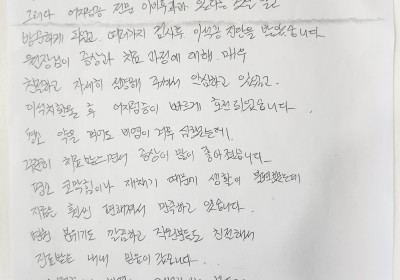 그러다 어지럼증 전문 이비인후과가 있다는 소문 듣고
방문하게 되었고 여러가지 검사후 이석증 진단을 받았습니다
원장님이 증상과 치료 과정에 대해 매우
친절하고 자세히 설명해 주셔서 안심하고 있었고
이석치환술 후 어지럼증이 빠르게 호전되었습니다
평소 약을 먹어도 비염이 너무 심했는데
꾸준히 치료받으면서 증상이 많이 좋아졌습니다
평소 코막힘이나 재채기 때문에 생활이 불편했는데
지금은 훨씬 편해져서 만족하고 있습니다.
병원 분위기도 깔끔하고 직원분들도 친절해서
진료받는 내내 믿음이 갔습니다.